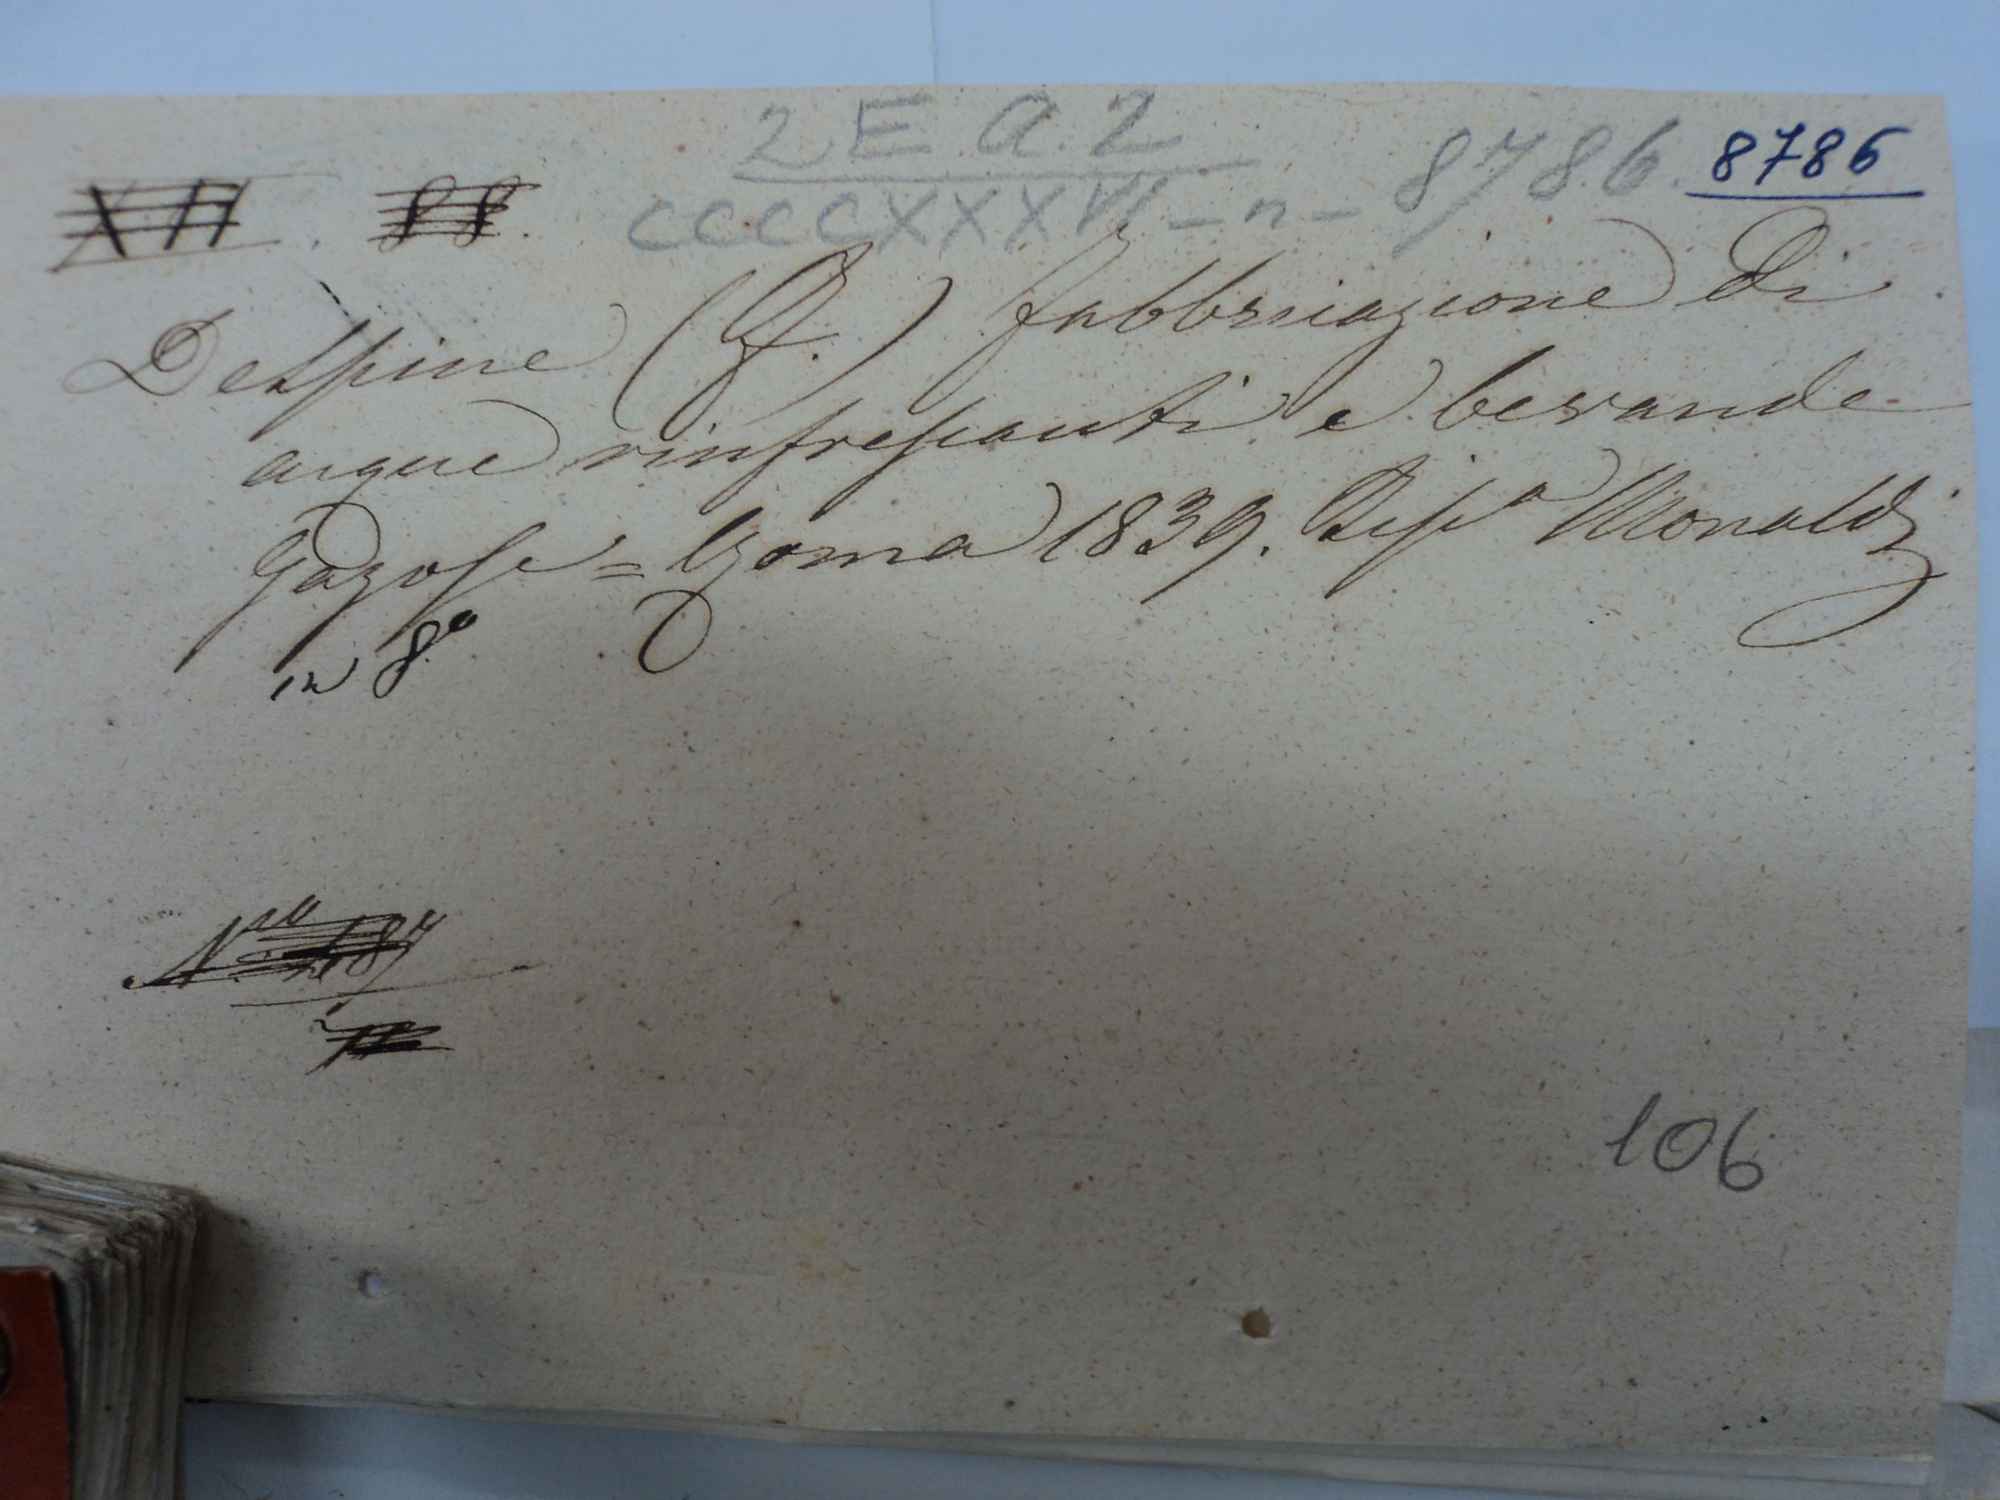 2 E a 2 8786
XII. 88. CCCCXXXVI - n - 8786
Despine (F.) fabbricazione di
acque rinfrescanti e bevande
gazose = Roma 1839. Tip.a Monaldi
in 8o
106